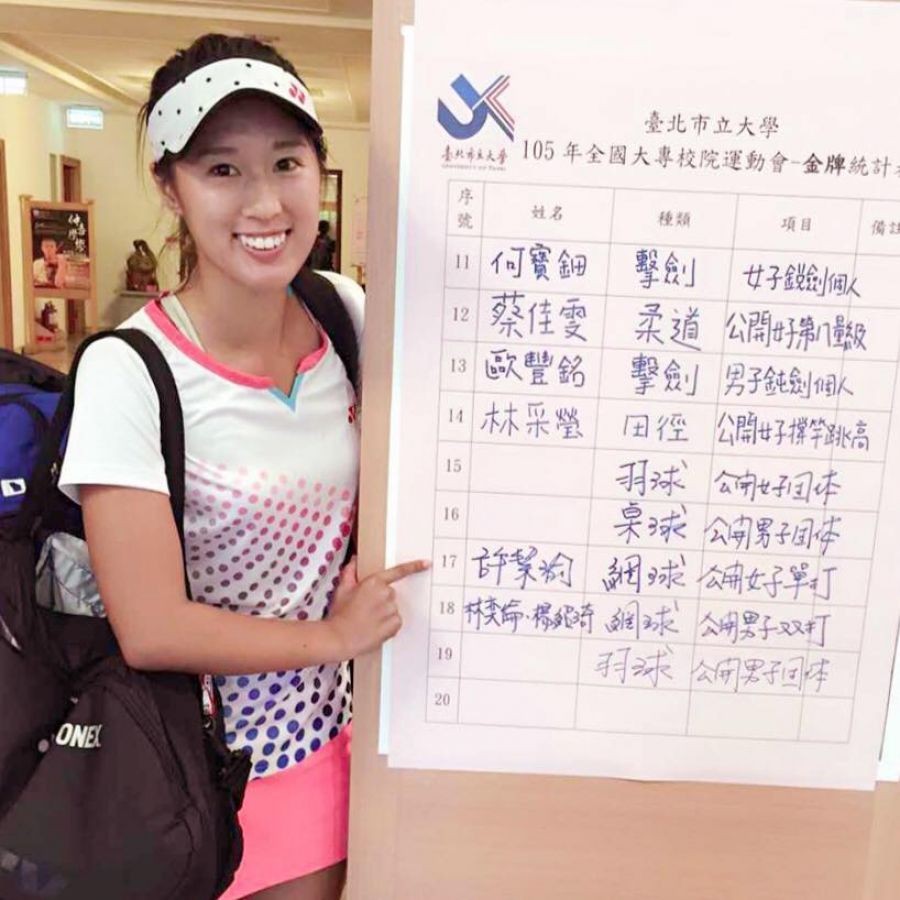 臺北市立大學
UNIVERSITY OF TAIPEI
臺北市立大學
105 年全國大專校院運動會-金牌統計
序號 姓名 種類 項目 備註
11 何寶鈿 擊劍 女子銳劍個人
12 蔡佳雯 柔道 公開女子第八量級
13 歐豐銘 擊劍 男子鈍劍個人
14 林采瑩 田徑 公開女子撐竿跳高
15 羽球 公開女子団体
16 桌球 公開男子団体
17 許絜瑜 網球 公開女子單打
18 林奕綸、楊 網球 公開男子双打
19 羽球 公開男子団体
20
YONEX